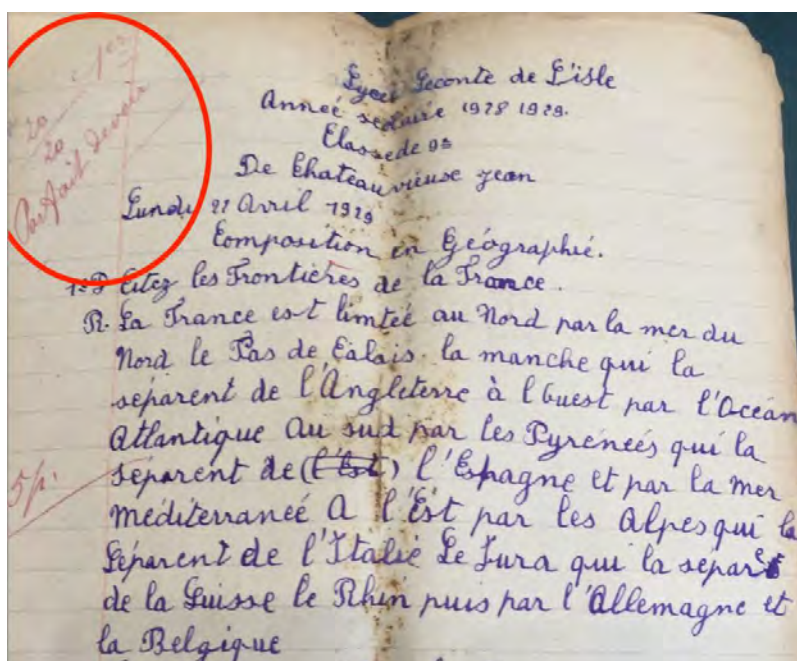 1er
20
20
Parfait devoir
Lycée Leconte de L'isle
Anneé scolaire 1928 1929.
Classe de 9e
De Chateauvieuse jean
Lundi 22 Avril 1929
Composition en Geógraphié.
1e D Citez les Frontiéres de la France.
R. La France est limteé au Nord par la mer du
Nord le Pas de Calais. la manche qui la
séparent de l'Angleterre à l'Ouest par l'Océan
Atlantique Au sud par les Pyreneés qui la
séparent de (l'Est) l'Espagne et par la mer
mediterraneé A l'Est par les Alpes qui la
Séparent de l'Italié Le Jura qui la sépare
de la Suisse le Rhin puis par l'Allemagne et
la Belgique
5 p.